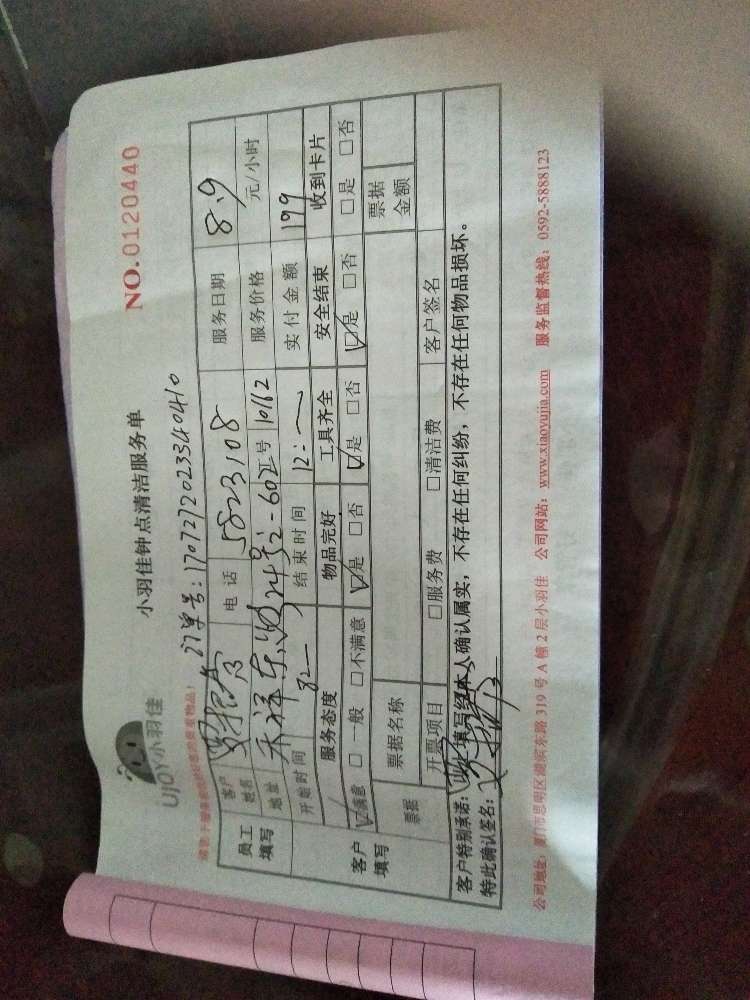 UJOY小羽佳
小羽佳钟点清洁服务单
NO.0120440
订单号:1707272023340410
客户姓名 电话 5823108 服务日期 8.9
员工填写 地址 工号 10162 服务价格 元/小时
开始时间 结束时间 12:一 实付金额 199
服务态度 物品完好 工具齐全 安全结束 收到卡片
客户填写 ☑满意 □一般 □不满意 ☑是 □否 ☑是 □否 ☑是 □否 □是 □否
票据 票据名称 票据金额
开票项目 □服务费 □清洁费 客户签名
客户特别承诺:以上填写经本人确认属实,不存在任何纠纷,不存在任何物品损坏。
特此确认签名:
公司地址:厦门市思明区湖滨东路 319 号 A 幢 2 层小羽佳 公司网站:www.xiaoyujia.com 服务监督热线:0592-5888123